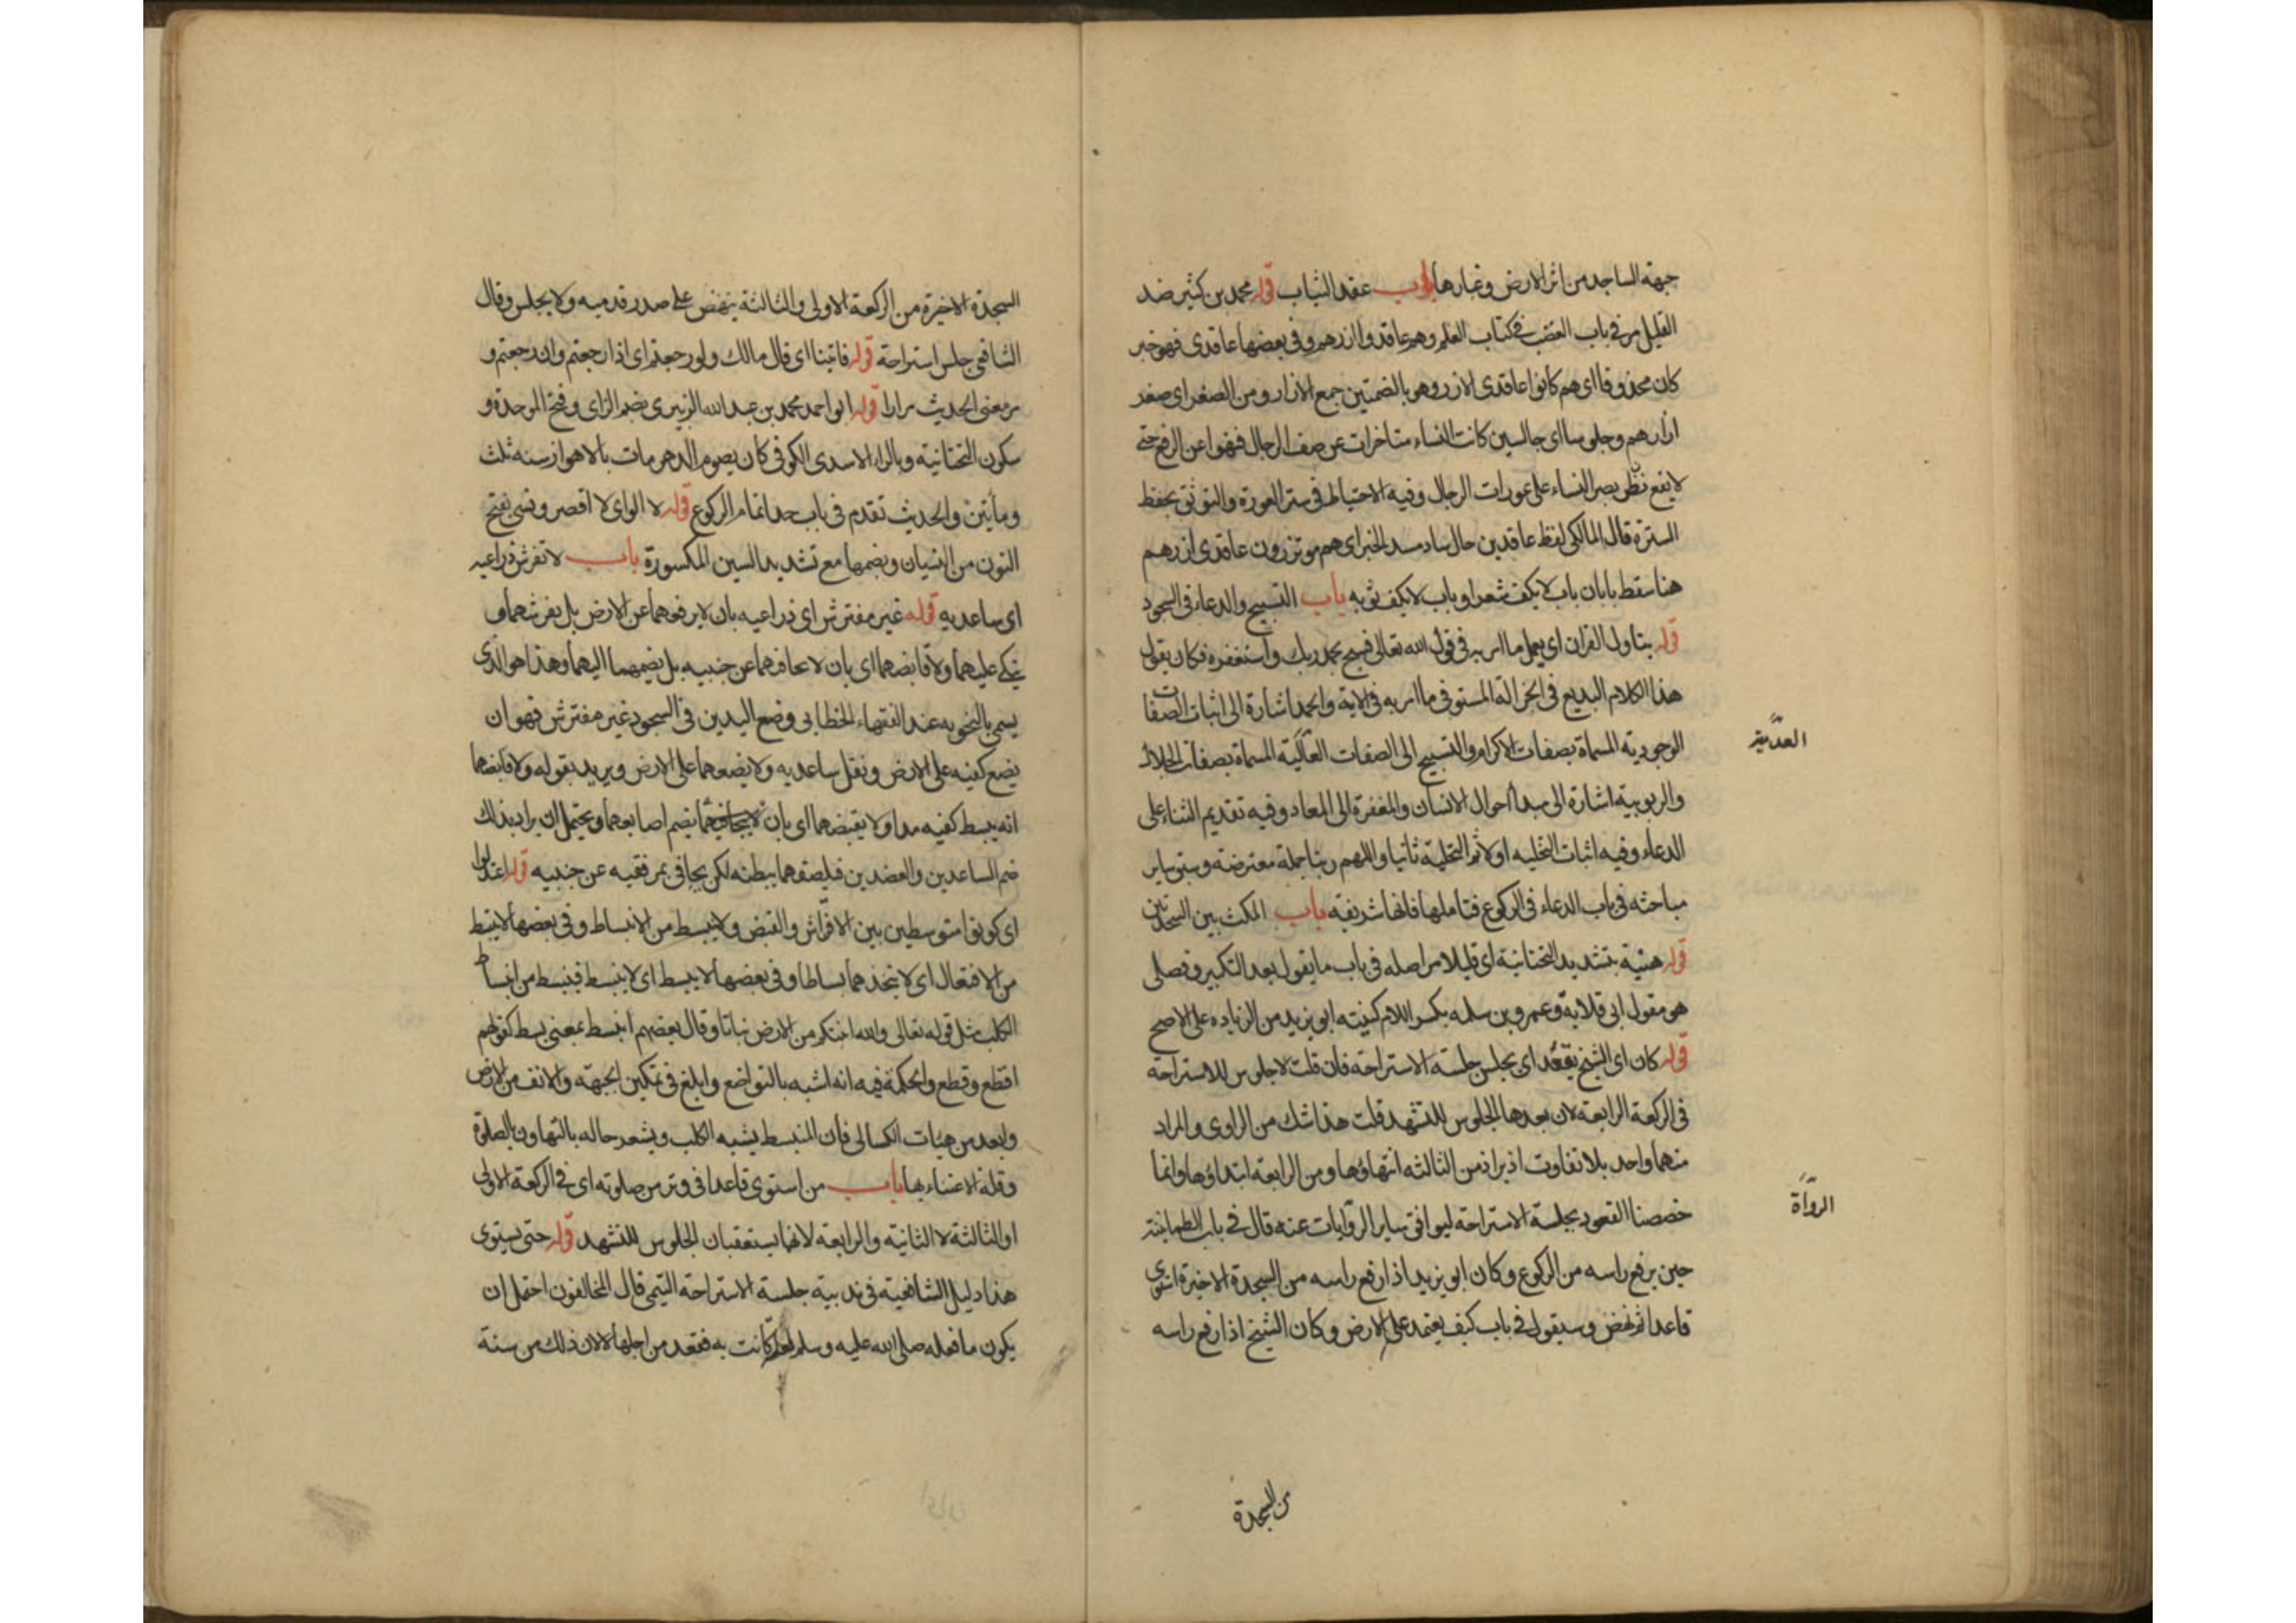 جبهة الساجد من اثر الارض وغبارها باب عقد الثياب قوله محمد بن كثير ضد
القليل مر في باب الغضب في كتاب العلم وهم عاقدوا ازرهم وفي بعضها عاقدي فهو خبر
كان محذوفا اي هم كانوا عاقدي الازر وهو بالضمتين جمع الازار ومن الصغر اي صغر
ازارهم وجلوسا اي جالسين كانت النساء متاخرات عن صف الرجال فنهوا عن الرفع حتى
لا يقع نظر بصر النساء على عورات الرجال وفيه الاحتياط في ستر العورة والتوثق بحفظ
السترة قال المالكي لفظ عاقدين حال ساد مسد الخبر اي هم موتزرون عاقدي ازرهم
هنا سقط بابان باب لا يكف شعرا وباب لا يكف ثوبه باب التسبيح والدعاء في السجود
قوله يتاول القران اي يعمل ما امر به في قول الله تعالى فسبح بحمد ربك واستغفره فكان يقول
هذا الكلام البديع في الجزالة المستوفي ما امر به في الاية والحمد اشارة الى اثبات الصفات
الوجودية المسماة بصفات الاكرام والتسبيح الى الصفات المسماة بصفات الجلال
العدمية
والربوبية اشارة الى مبدا احوال الانسان والمغفرة الى المعاد وفيه تقديم الثناء على
الدعاء وفيه اثبات التخليه اولا ثم التحلية ثانيا واللهم ربنا جملة معترضة وسبق ساير
مباحثه في باب الدعاء في الركوع فتاملها فانها شريفة باب المكث بين السجدتين
قوله هنية بتشديد التحتانية اي قليلا مر اصله في باب ما يقول بعد التكبير وفصلى
هو مقول ابي قلابة وعمرو بن سلمه بكسر اللام كنيته ابو يزيد من الزياده على الاصح
قوله كان اي الشيخ يقعد اي يجلس جلسة الاستراحة فان قلت لا جلوس للاستراحة
في الركعة الرابعة لان بعدها الجلوس للتشهد قلت هذا شك من الراوي والمراد
منهما واحد بلا تفاوت اذ يراد من الثالثه انتهاؤها ومن الرابعة ابتداؤها وانما
خصصنا القعود بجلسة الاستراحة ليوافق ساير الروايات عنه قال في باب الطمانينة
الرواة
حين يرفع راسه من الركوع وكان ابو يزيد اذا رفع راسه من السجدة الاخيرة استوى
قاعدا ثم نهض وسيقول في باب كيف يعتمد على الارض وكان الشيخ اذا رفع راسه
من السجدة
السجدة الاخيرة من الركعة الاولى والثالثة ينهض على صدر قدميه ولا يجلس وقال
الشافعي جلس استراحة قوله فاتينا اي قال مالك ولو رجعتم اي اذا رجعتم وان رجعتم و
مر معنى الحديث مرارا قوله ابو احمد محمد بن عبد الله الزبيري بضم الزاي وفتح الموحدة و
سكون التحتانية وبالراء الاسدي الكوفي كان يصوم الدهر مات بالاهواز سنة ثلث
ومايتين والحديث تقدم في باب حد اتمام الركوع قوله لا الو اي لا اقصر ونسي بفتح
النون من النسيان وبضمها مع تشديد السين المكسورة باب لا تفرش ذراعيه
اي ساعديه قوله غير مفترش اي ذراعيه بان لا يرفعهما عن الارض بل يفرشهما و
يتكي عليهما ولا قابضهما اي بان لا يجافهما عن جنبيه بل يضمهما اليهما وهذا هو الذي
يسمى بالتخويه عند الفقهاء الخطابي وضع اليدين في السجود غير مفترش فهو ان
يضع كفيه على الارض ويقل ساعديه ولا يضعهما على الارض ويريد بقوله ولا قابضهما
انه يبسط كفيه مدا ولا يقبضهما اي بان يضم اصابعهما ويحتمل ان يراد بذلك
ضم الساعدين والعضدين فيلصقهما ببطنه لكن يجافي بمرفقيه عن جنبيه قوله اعتدلوا
اي كونوا متوسطين بين الافتراش والقبض ولا ينبسط من الانبساط وفي بعضها لا يبتسط
من الافتعال اي لا يتخذهما بساطا وفي بعضها لا يبسط اي لا ينبسط فينبسط من انبساط
الكلب مثل قوله تعالى والله انبتكم من الارض نباتا وقال بعضهم انبسط بمعنى بسط كقولهم
اقتطع وقطع والحكمة فيه انه اشبه بالتواضع وابلغ في تمكين الجبهة والانف من الارض
وابعد من هيات الكسالى فان المنبسط يشبه الكلب ويشعر حاله بالتهاون بالصلوة
وقلة الاعتناء بها باب من استوى قاعدا في وتر من صلوته اي في الركعة الاولى
او الثالثة لا الثانية والرابعة لانهما يستعقبان الجلوس للتشهد قوله حتى يستوي
هذا دليل الشافعية في ندبية جلسة الاستراحة التيمي قال المخالفون احتمل ان
يكون ما فعله صلى الله عليه وسلم لعلة كانت به فقعد من اجلها لا لان ذلك من سنة